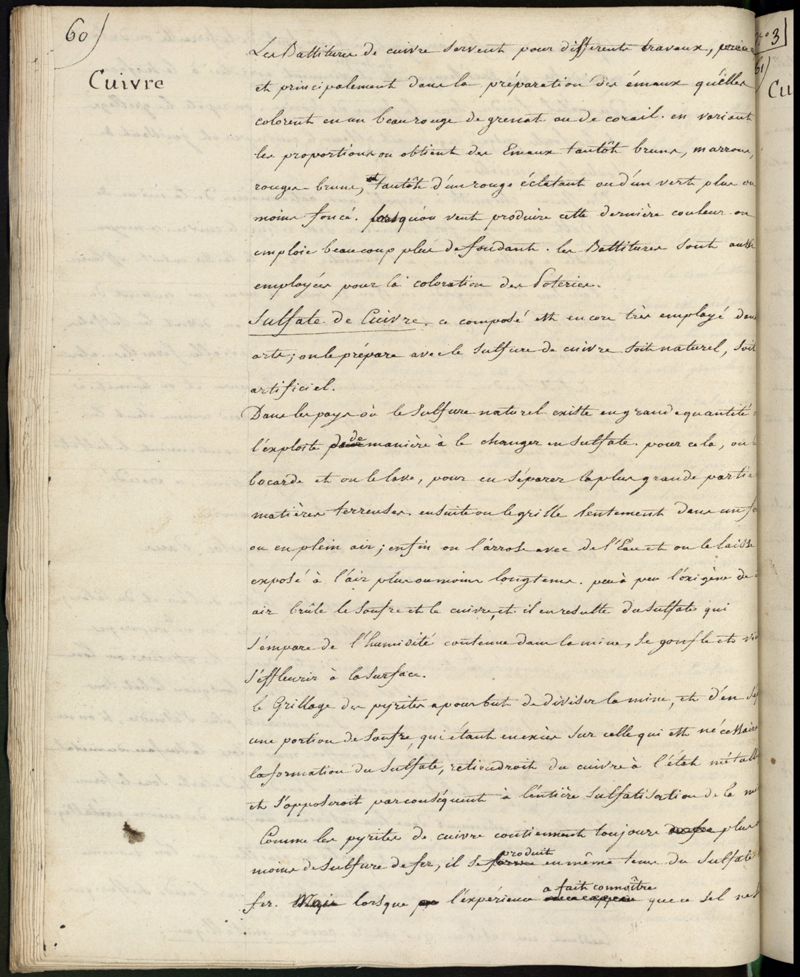 60)
Cuivre
Les Battitures de cuivre servent pour différents travaux,
et principalement dans la préparation des émaux qu'elles
colorent en un beau rouge de grenat ou de corail. en variant
les proportions on obtient des Emaux tantôt bruns, marrons,
rouges-bruns, et tantôt d'un rouge éclatant ou d'un vert plus ou
moins foncé. lorsqu'on veut produire cette dernière couleur on
emploie beaucoup plus de fondant. les Battitures sont aussi
employées pour la coloration des Poteries.
Sulfate de Cuivre, ce composé est encore très employé dans
arts; on le prépare avec le sulfure de cuivre soit naturel, soit
artificiel.
Dans les pays où le Sulfure naturel existe en grande quantité
l'exploite de manière à le changer en sulfate. pour cela, on
bocarde et on le lave, pour en séparer la plus grande partie
matières terreuses. ensuite on le grille lentement dans un
ou en plein air; enfin on l'arrose avec de l'Eau et on le laisse
exposé à l'air plus ou moins longtems. peu à peu l'oxigène de
air brûle le Soufre et le cuivre, et il en resulte du sulfate qui
s'empare de l'humidité contenue dans la mine, se gonfle et
s'effleurir à la surface.
le Grillage des pyrites a pour but de diviser la mine, et d'en
une portion de Soufre, qui étant en excès sur celle qui est nécessaire
la formation du Sulfate, retiendroit du cuivre à l'état
et s'opposeroit par conséquent à l'entière sulfatisation de la
Comme les pyrites de cuivre contiennent toujours plus
moins de Sulfure de fer, il se forme produit en même tems du Sulfate
fer. Mais lorsque l'expérience a fait connoître que ce sel
3
61)
Cu